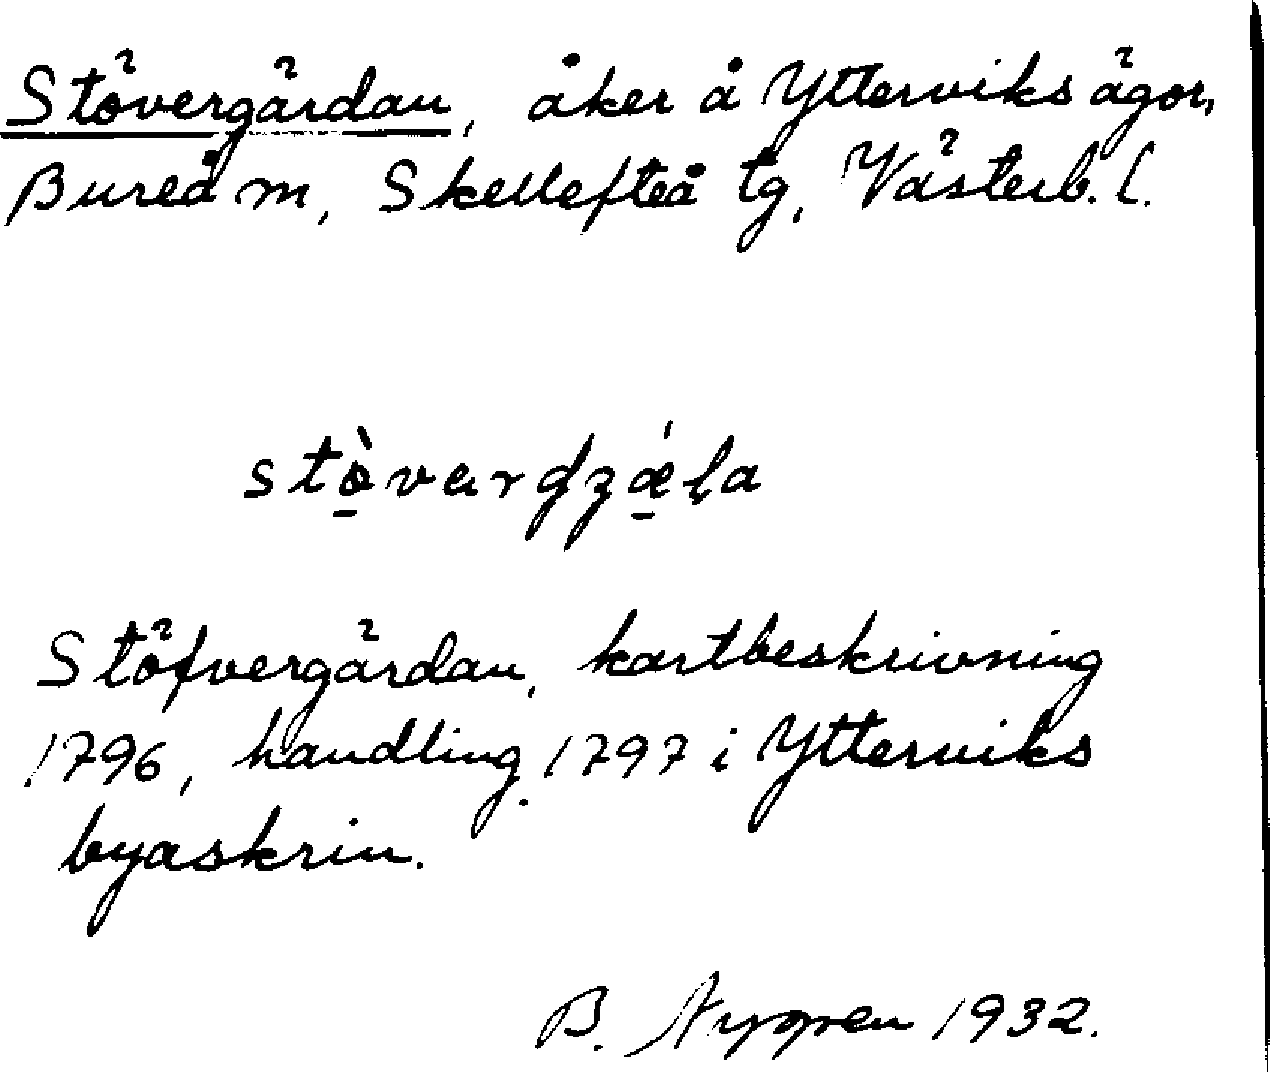 Stövergärdan, åker å Ytterviks ägor,
Bureå m, Skellefteå tg, Västerb. l.
stò̠vərdʒǽ̠ɽa
Stöfvergärdan, kartbeskrivning
1796, handling 1797 i Ytterviks
byaskrin.
B. Nygren 1932.